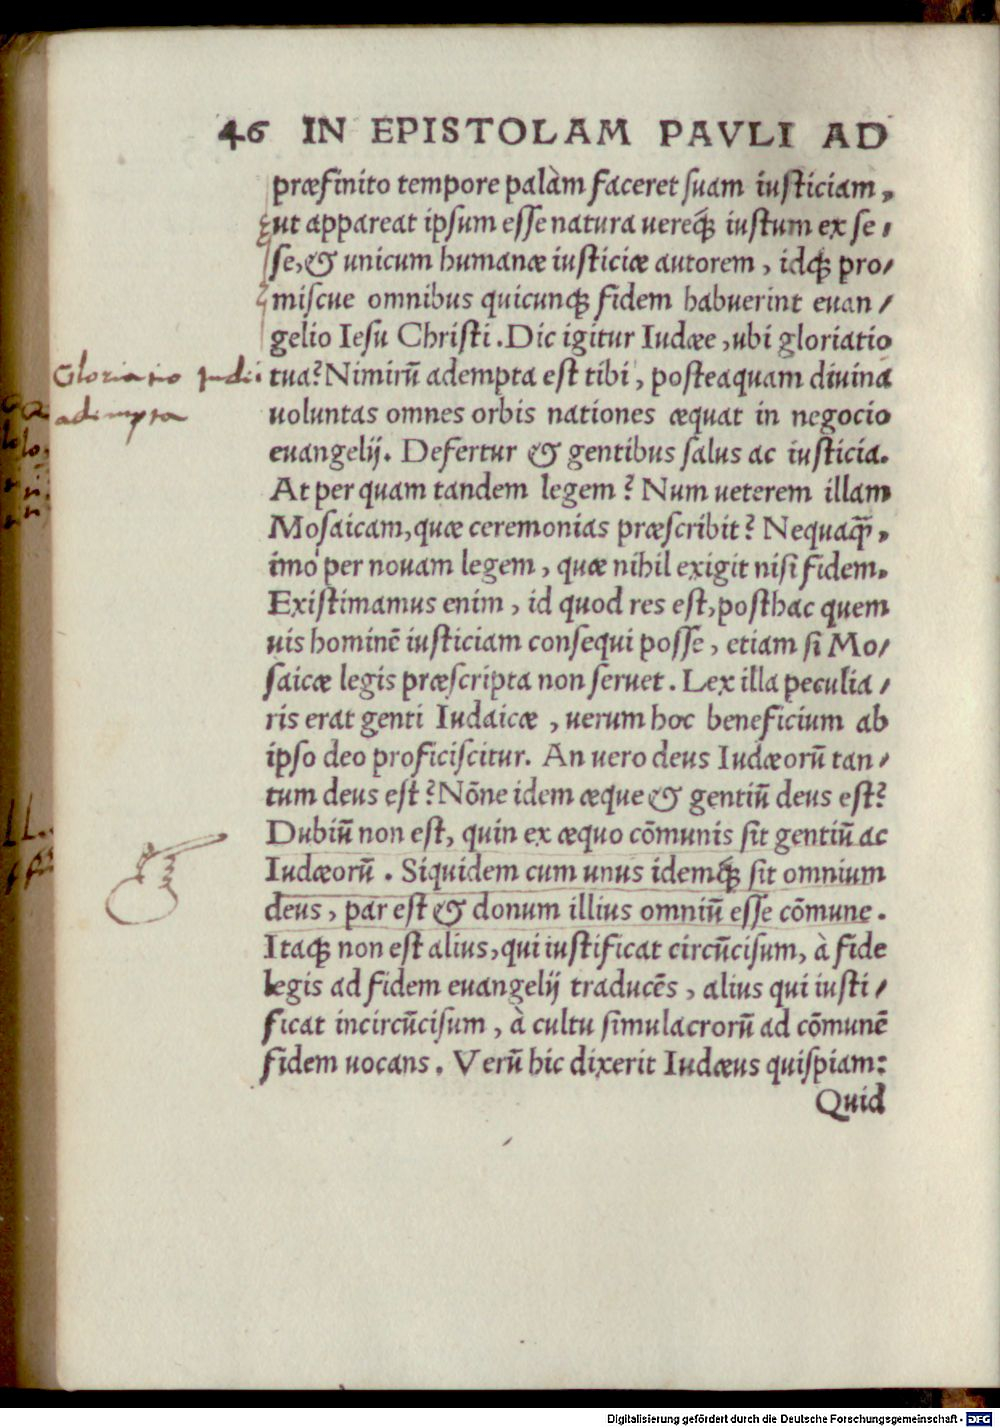 46 IN EPISTOLAM PAVLI AD
præfinito tempore palàm faceret suam iusticiam,
ut appareat ipsum esse natura uereq́; iustum ex se-
se, & unicum humanæ iusticiæ autorem, idq́; pro-
miscue omnibus quicunq; fidem habuerint euan-
gelio Iesu Christi. Dic igitur Iudæe, ubi gloriatio
Gloriatio Iudei
adempta
tua? Nimirũ adempta est tibi, posteaquam diuina
uoluntas omnes orbis nationes æquat in negocio
euangelij. Defertur & gentibus salus ac iusticia.
At per quam tandem legem? Num ueterem illam
Mosaicam, quæ ceremonias præscribit? Nequaq̃,
imó per nouam legem, quæ nihil exigit nisi fidem.
Existimamus enim, id quod res est, posthac quem
uis hominẽ iusticiam consequi posse, etiam si Mo-
saicæ legis præscripta non seruet. Lex illa peculia-
ris erat genti Iudaicæ, uerum hoc beneficium ab
ipso deo proficiscitur. An uero deus Iudæorũ tan-
tum deus est? Nõne idem æque & gentiũ deus est?
Dubiũ non est, quin ex æquo cõmunis sit gentiũ ac
Iudæorũ. Siquidem cum unus idemq́; sit omnium
deus, par est & donum illius omniũ esse cõmune.
Itaq; non est alius, qui iustificat circũcisum, à fide
legis ad fidem euangelij traducẽs, alius qui iusti-
ficat incircũcisum, à cultu simulacrorũ ad cõmunẽ
fidem uocans. Verũ hic dixerit Iudæus quispiam:
Quid
Digitalisierung gefördert durch die Deutsche Forschungsgemeinschaft - DFG